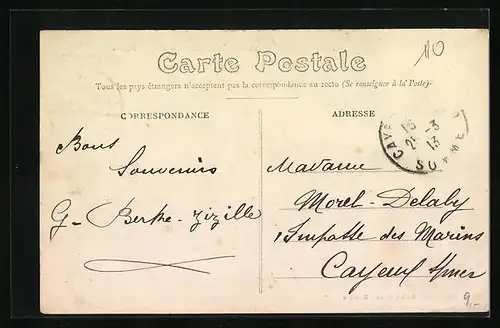 110
Carte Postale
Tous les pays étrangers n'acceptent pas la correspondance au recto (Se renseigner à la Poste)
CORRESPONDANCE
ADRESSE
CAYE SOMME
21-3 13
Bons
Souvenirs
G- Berthe-Zizille
Madame
Morel-Delaby
1 Impasse des Marins
Cayeux s/mer
9,-